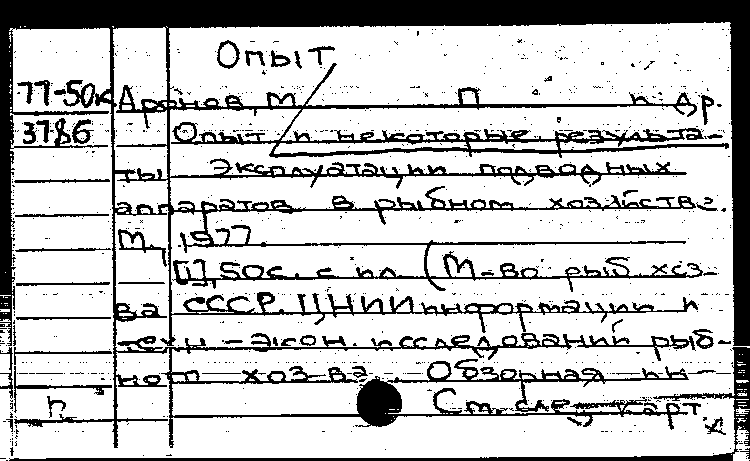 Опыт
77-50к Аронов, М П и др.
3786 Опыт и некоторые результа-
ты эксплуатации подводных
аппаратов в рыбном хозяйстве.
М., 1977.
[1], 50с. с ил. (М-во рыб хоз-
ва СССР. ЦНИИинформации и
техн-экон. исследований рыб-
ного хоз-ва. Обзорная ин-
П См. след карт.